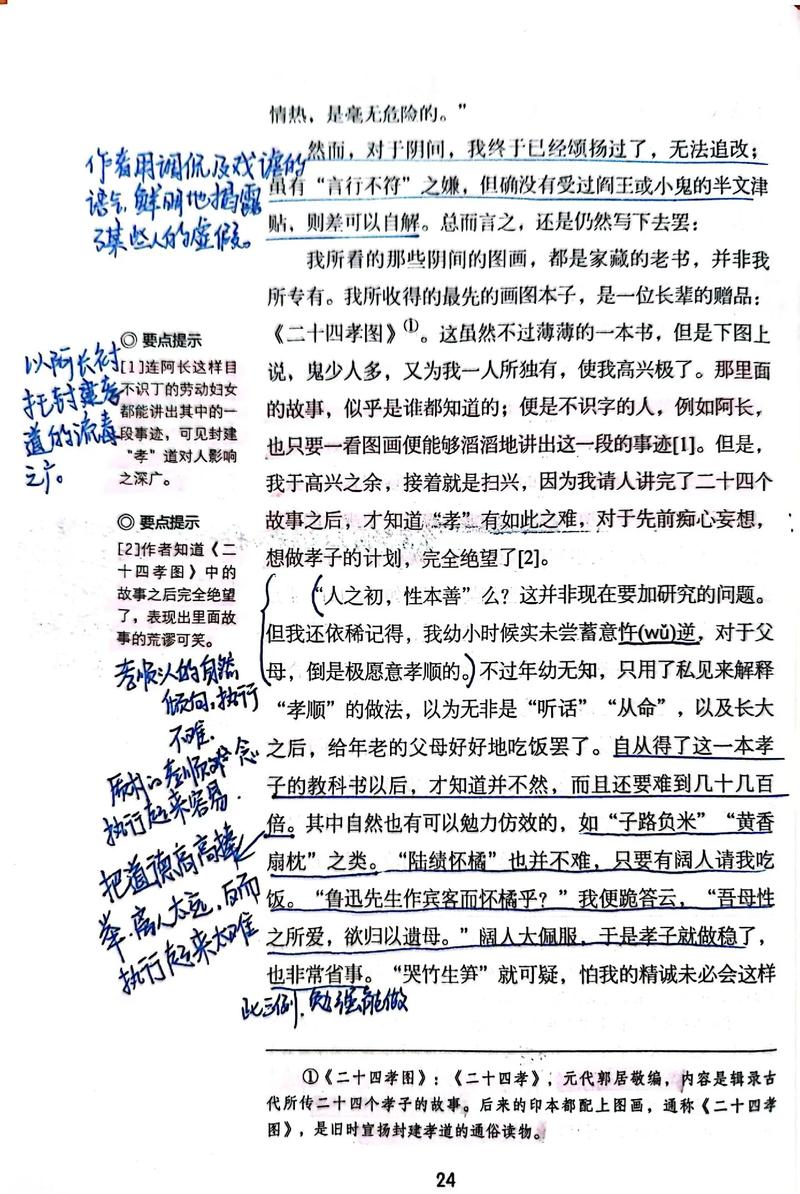 情热，是毫无危险的。”
然而，对于阴间，我终于已经颂扬过了，无法追改；
虽有“言行不符”之嫌，但确没有受过阎王或小鬼的半文津
贴，则差可以自解。总而言之，还是仍然写下去罢：
我所看的那些阴间的图画，都是家藏的老书，并非我
所专有。我所收得的最先的画图本子，是一位长辈的赠品：
《二十四孝图》①。这虽然不过薄薄的一本书，但是下图上
说，鬼少人多，又为我一人所独有，使我高兴极了。那里面
的故事，似乎是谁都知道的；便是不识字的人，例如阿长，
也只要一看图画便能够滔滔地讲出这一段的事迹[1]。但是，
我于高兴之余，接着就是扫兴，因为我请人讲完了二十四个
故事之后，才知道“孝”有如此之难，对于先前痴心妄想，
想做孝子的计划，完全绝望了[2]。
“人之初，性本善”么？这并非现在要加研究的问题。
但我还依稀记得，我幼小时候实未尝蓄意忤(wǔ)逆，对于父
母，倒是极愿意孝顺的。不过年幼无知，只用了私见来解释
“孝顺”的做法，以为无非是“听话”“从命”，以及长大
之后，给年老的父母好好地吃饭罢了。自从得了这一本孝
子的教科书以后，才知道并不然，而且还要难到几十几百
倍。其中自然也有可以勉力仿效的，如“子路负米”“黄香
扇枕”之类。“陆绩怀橘”也并不难，只要有阔人请我吃
饭。“鲁迅先生作宾客而怀橘乎？”我便跪答云，“吾母性
之所爱，欲归以遗母。”阔人大佩服，于是孝子就做稳了，
也非常省事。“哭竹生笋”就可疑，怕我的精诚未必会这样
作者用调侃及戏谑的
语气，鲜明地揭露
了某些人的虚假。
◎ 要点提示
[1]连阿长这样目
不识丁的劳动妇女
都能讲出其中的一
段事迹，可见封建
“孝”道对人影响
之深广。
以阿长衬
托封建孝
道的流毒
之广。
◎ 要点提示
[2]作者知道《二
十四孝图》中的
故事之后完全绝望
了，表现出里面故
事的荒谬可笑。
孝顺人的自然
倾向，执行
不难.
原本的孝顺观念
执行起来容易.
把道德高高捧
举，离人太远，反而
执行起来太难
此三例，勉强能做
①《二十四孝图》：《二十四孝》，元代郭居敬编，内容是辑录古
代所传二十四个孝子的故事。后来的印本都配上图画，通称《二十四孝
图》，是旧时宣扬封建孝道的通俗读物。
24